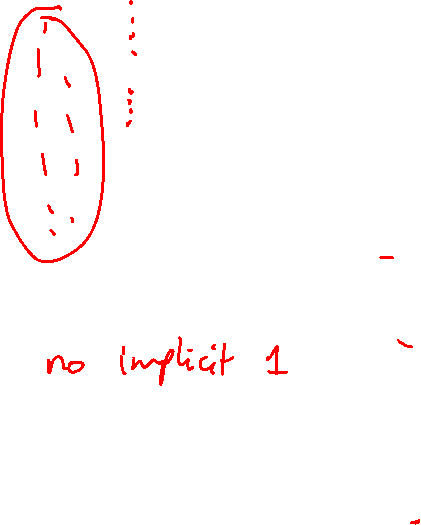 no implicit 1